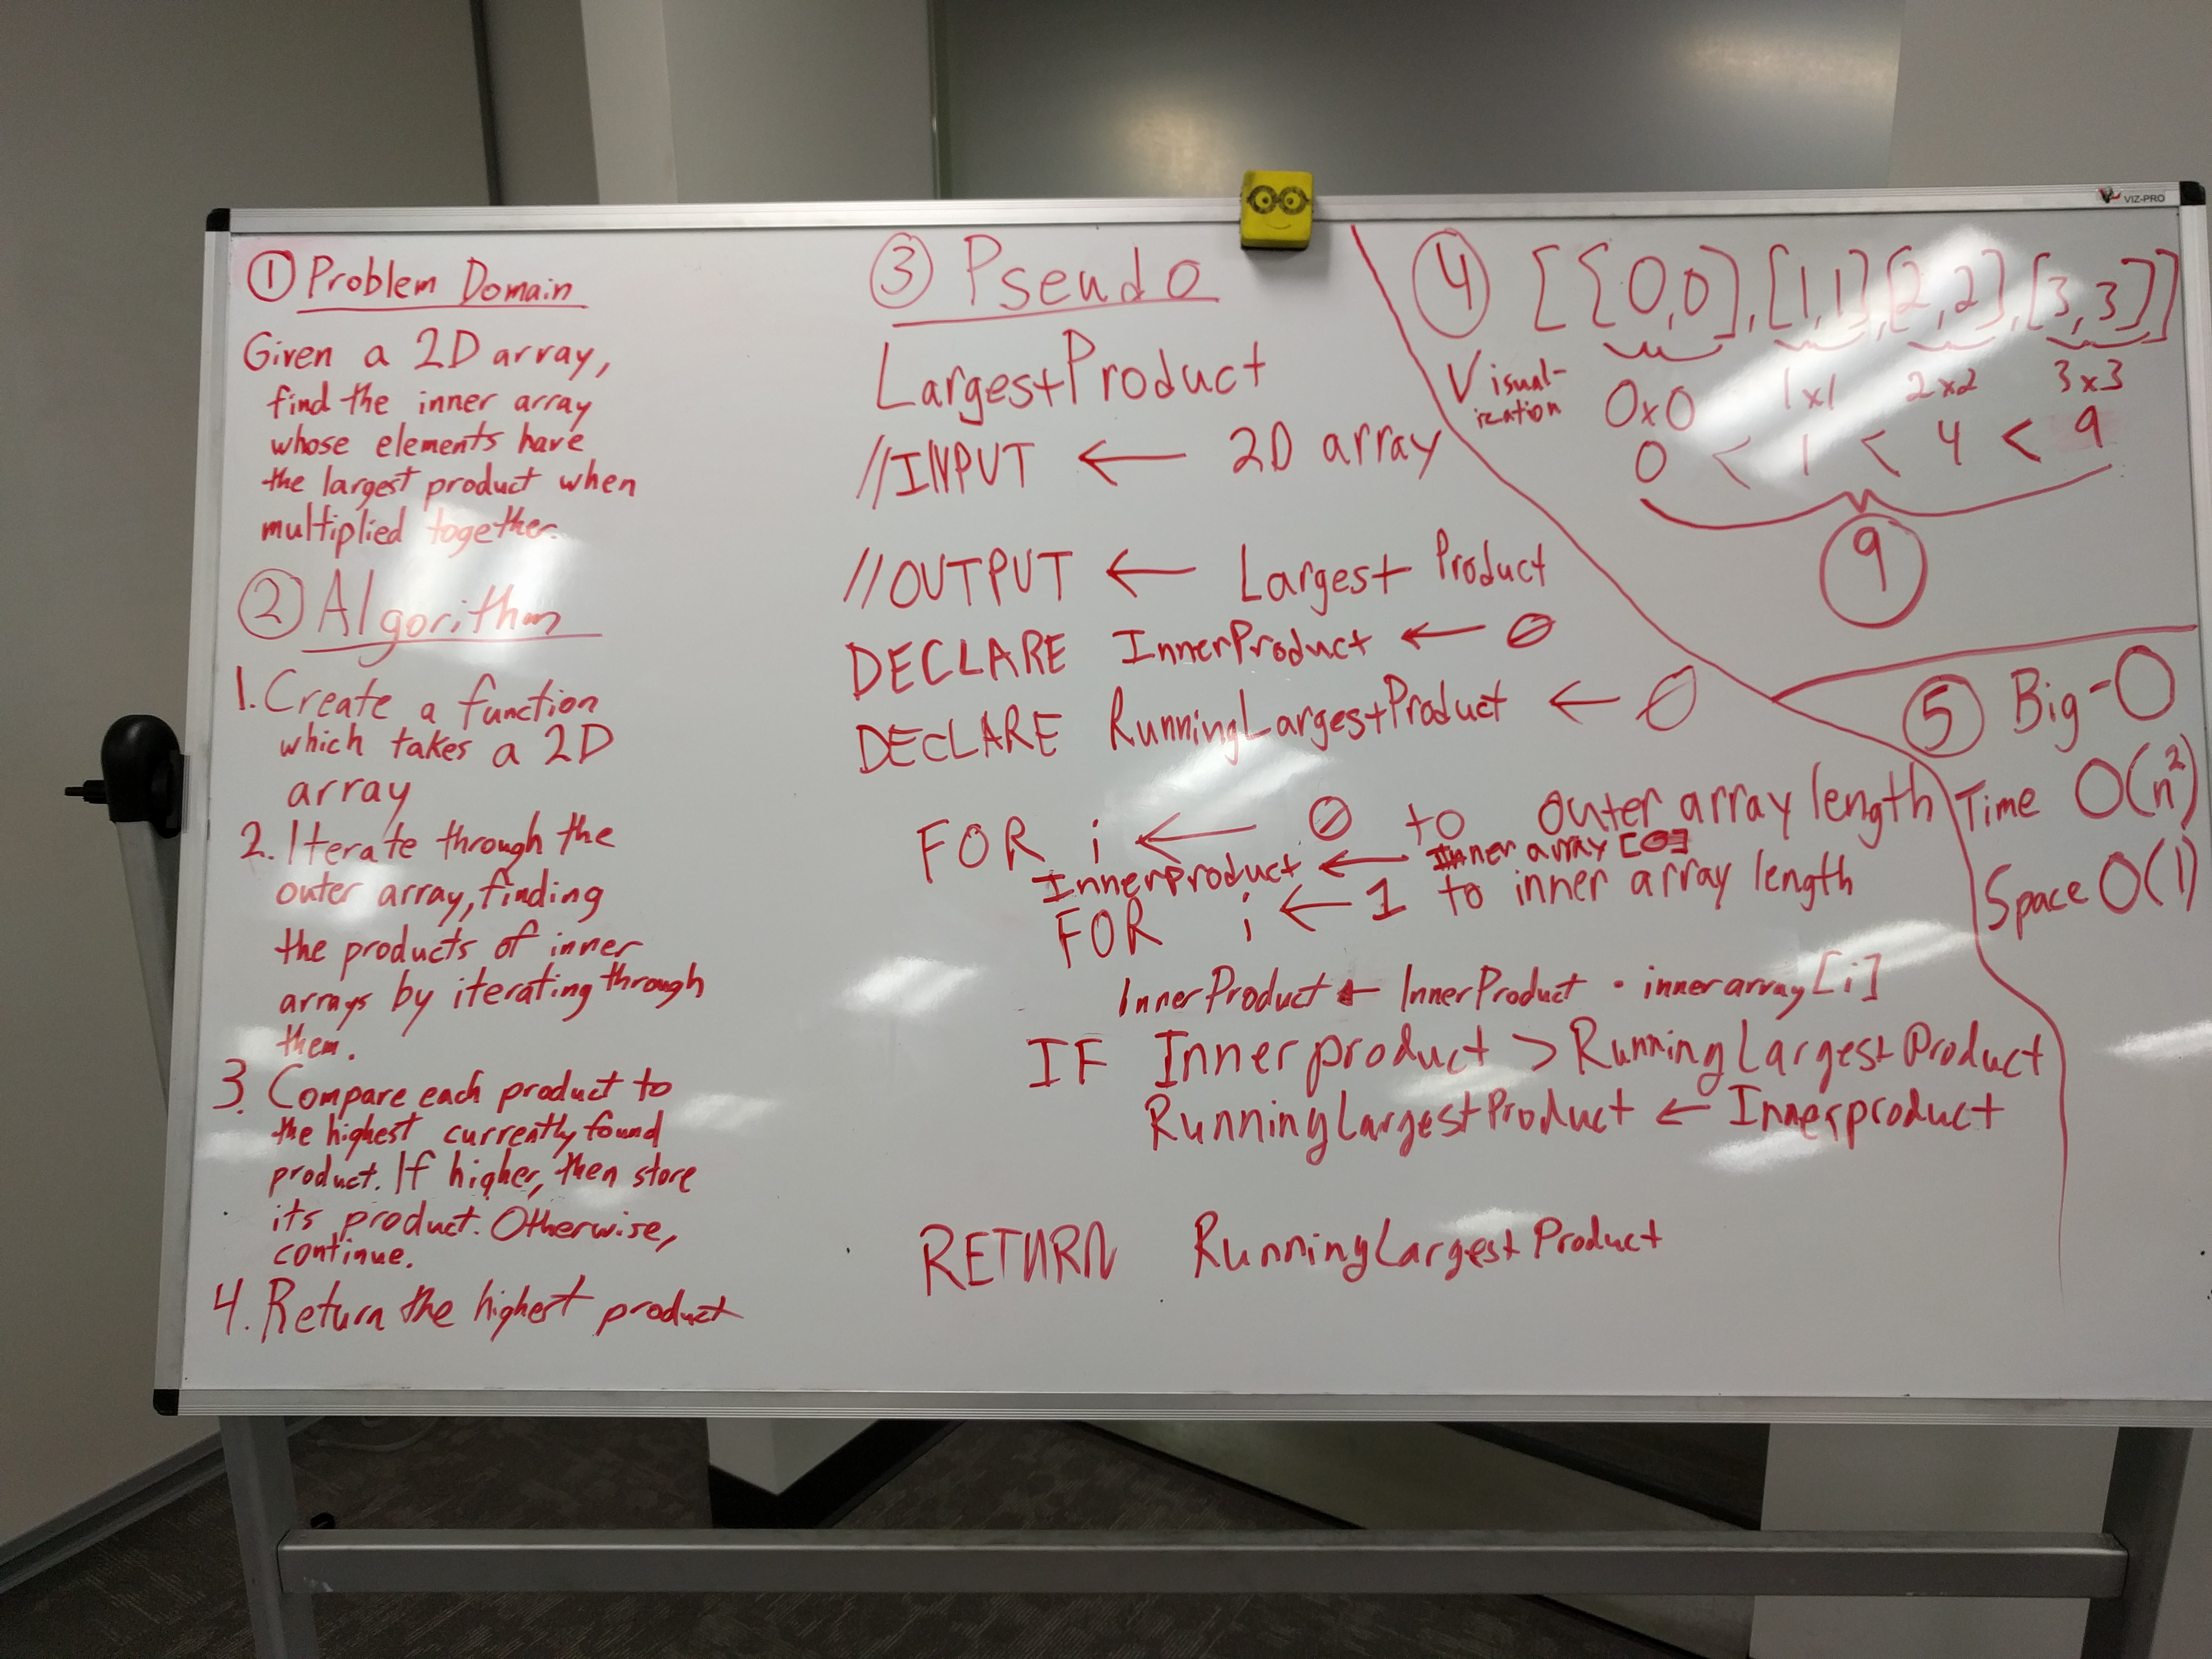 ① Problem Domain
Given a 2D array,
find the inner array
whose elements have
the largest product when
multiplied together.
② Algorithm
1. Create a function
which takes a 2D
array
2. Iterate through the
outer array, finding
the products of inner
arrays by iterating through
them.
3. Compare each product to
the highest currently found
product. If higher, then store
its product. Otherwise,
continue.
4. Return the highest product
③ Pseudo
LargestProduct
//INPUT ← 2D array
//OUTPUT ← Largest Product
DECLARE InnerProduct ← 0
DECLARE RunningLargestProduct ← 0
FOR i ← 0 to outer array length
Innerproduct ← Inner array [0]
FOR i ← 1 to inner array length
InnerProduct ← InnerProduct · innerarray[i]
IF Innerproduct > RunningLargestProduct
RunningLargestProduct ← Innerproduct
RETURN RunningLargestProduct
④ [[0,0],[1,1],[2,2],[3,3]]
Visual-
ization
0x0 1x1 2x2 3x3
0 < 1 < 4 < 9
9
⑤ Big-O
Time O(n²)
Space O(1)
VIZ-PRO